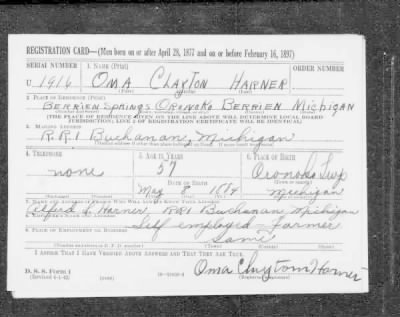 REGISTRATION CARD—(Men born on or after April 28, 1877 and on or before February 16, 1897)
SERIAL NUMBER 1. NAME (Print) ORDER NUMBER
U 1916 OMA CLAYTON HARNER
(First) (Middle) (Last)
2. PLACE OF RESIDENCE (Print)
BERRIEN SPRINGS ORONOKO BERRIEN MICHIGAN
(THE PLACE OF RESIDENCE GIVEN ON THE LINE ABOVE WILL DETERMINE LOCAL BOARD
JURISDICTION; LINE 2 OF REGISTRATION CERTIFICATE WILL BE IDENTICAL)
3. MAILING ADDRESS
R.R.1 Buchanan, Michigan
4. TELEPHONE 5. AGE IN YEARS 6. PLACE OF BIRTH
none 57 Oronoko Twp
DATE OF BIRTH (Town or county)
May 8 Michigan
7. NAME AND ADDRESS OF PERSON WHO WILL ALWAYS KNOW YOUR ADDRESS
Alfred Harner RR1 Buchanan, Michigan
8. EMPLOYER'S NAME AND ADDRESS
Self employed Farmer
9. PLACE OF EMPLOYMENT OR BUSINESS
Same
I AFFIRM THAT I HAVE VERIFIED ABOVE ANSWERS AND THAT THEY ARE TRUE.
D. S. S. Form 1
(Revised 4-1-42) Oma Clayton Harner